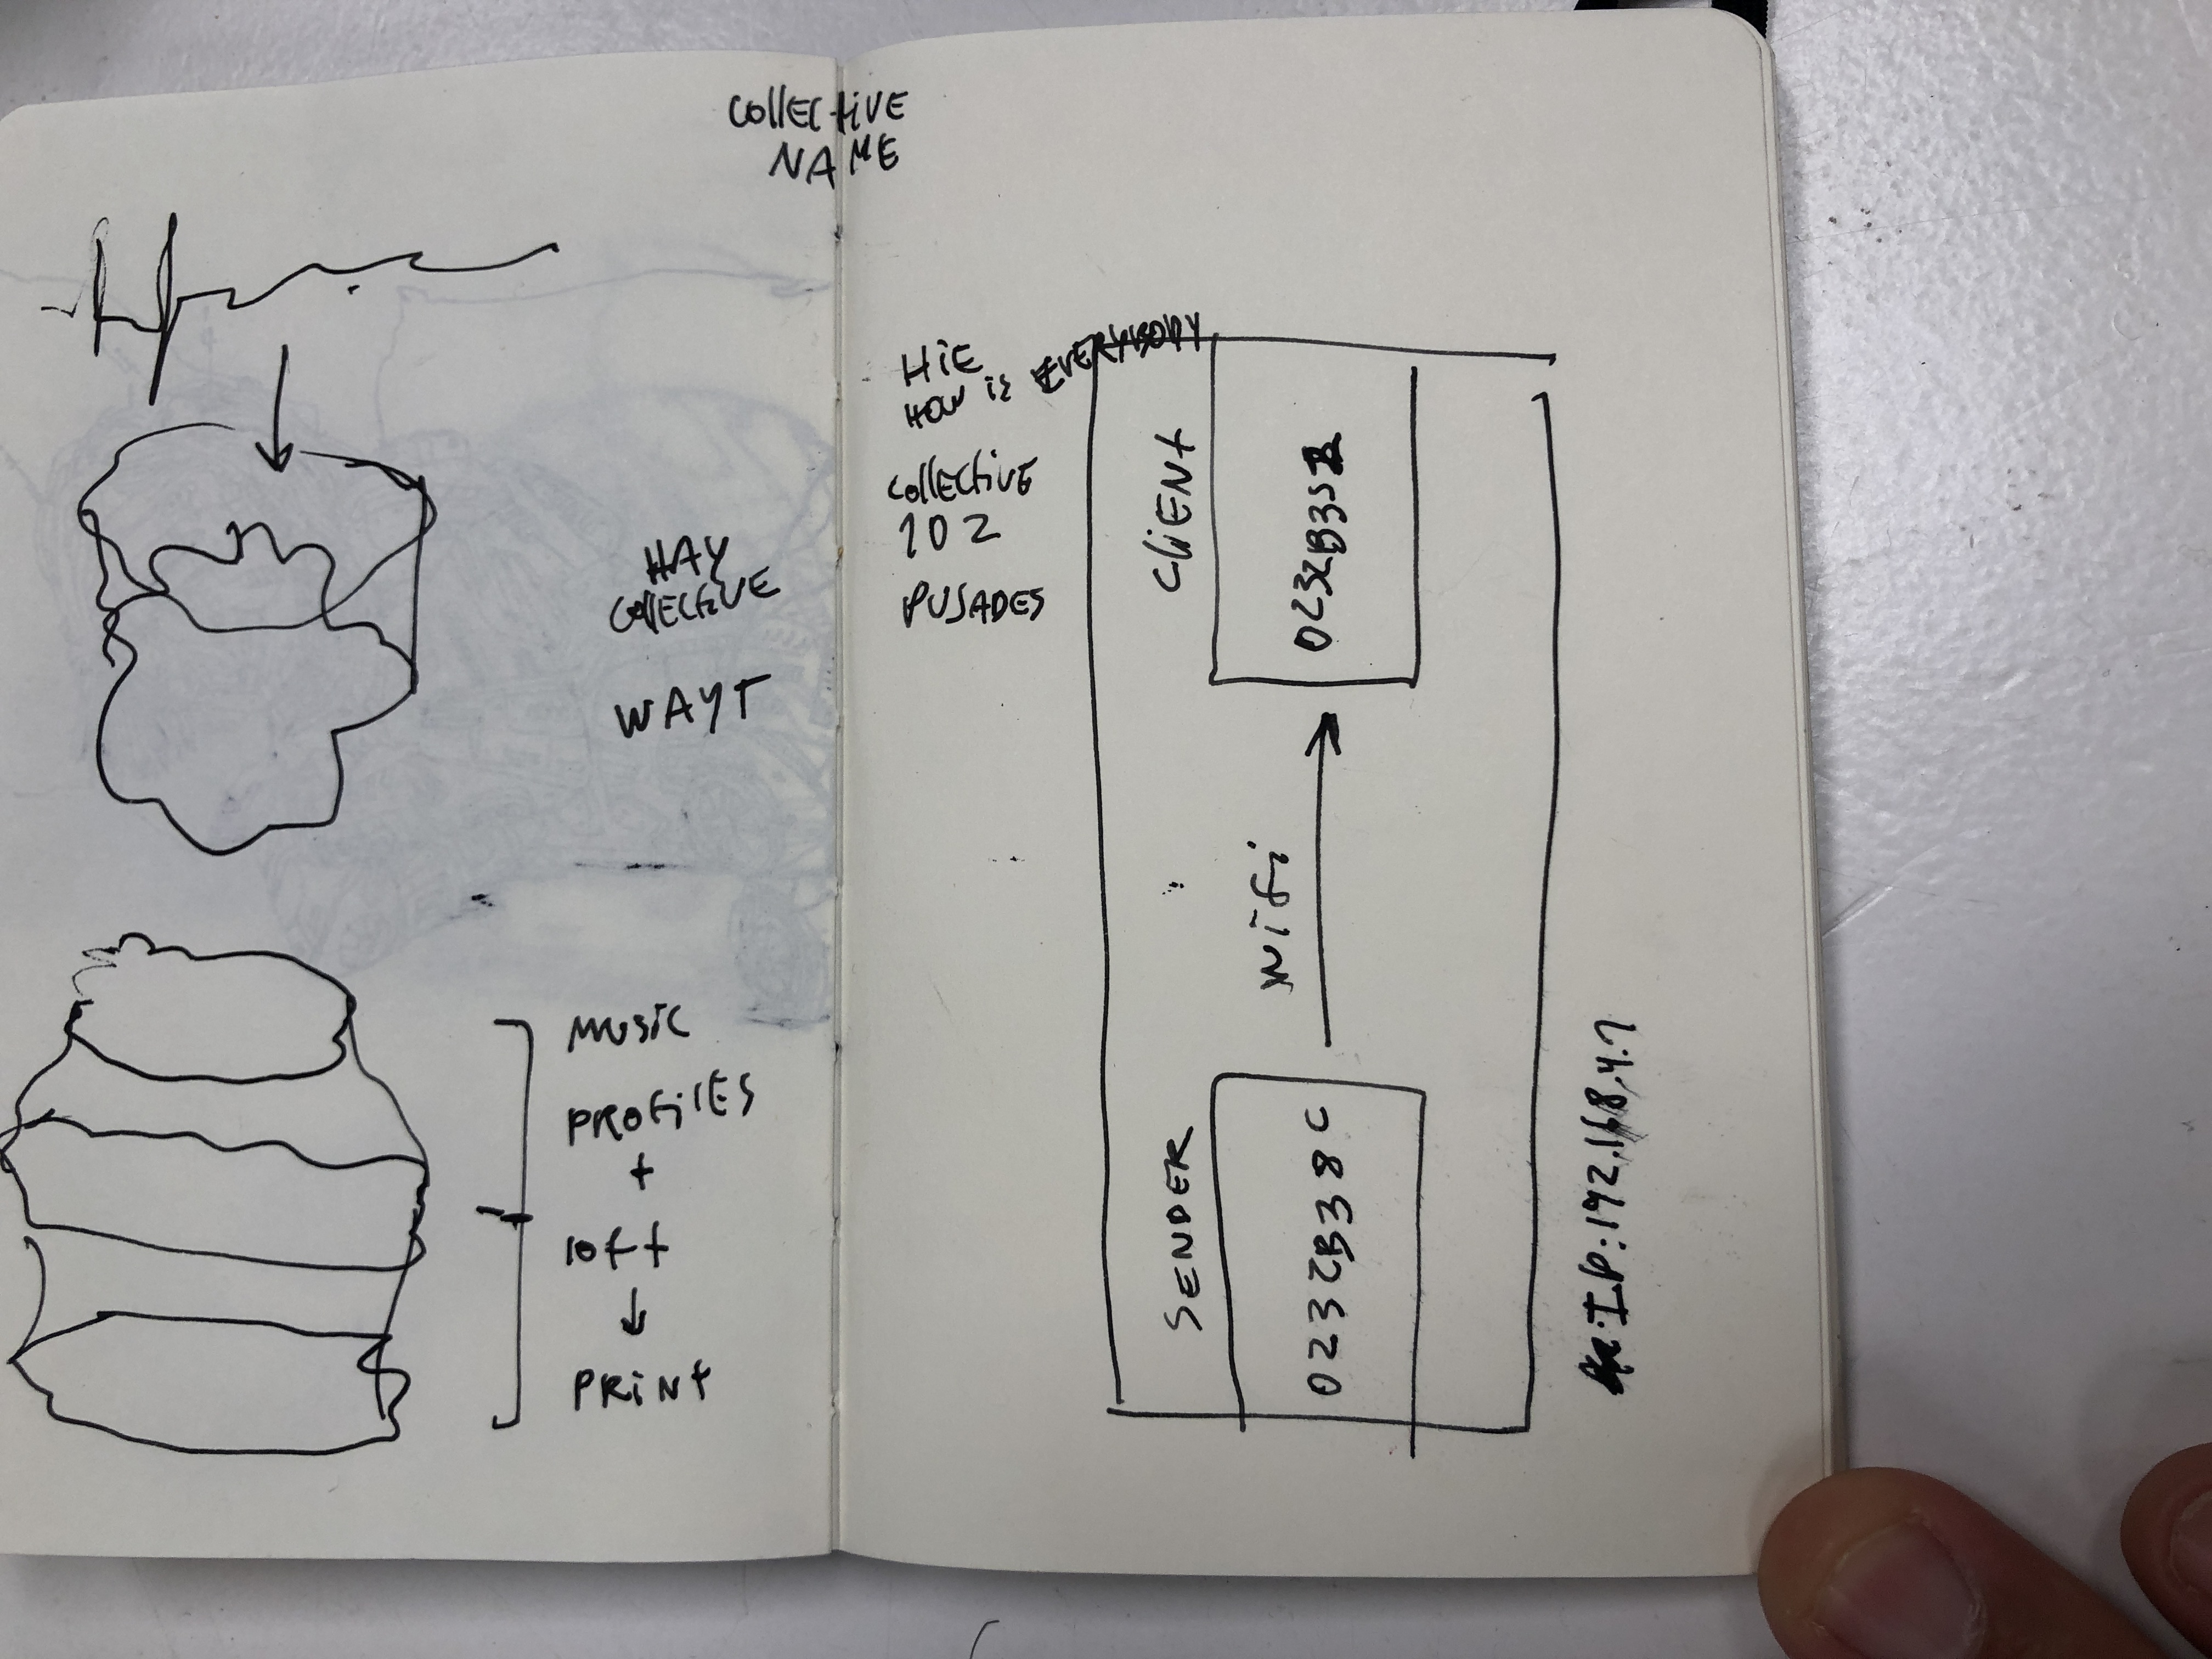 COllECtiVE
NAME
HAY
COllECtiVE
WAYT
MUSiC
PROfilES
+
lOft
↓
PRiNt
HiE
HOW is EVERYBODY
COllECtiVE
102
PUJADES
SENDER
CliENt
wifi
0232B38C
IP: 192.168.4.1